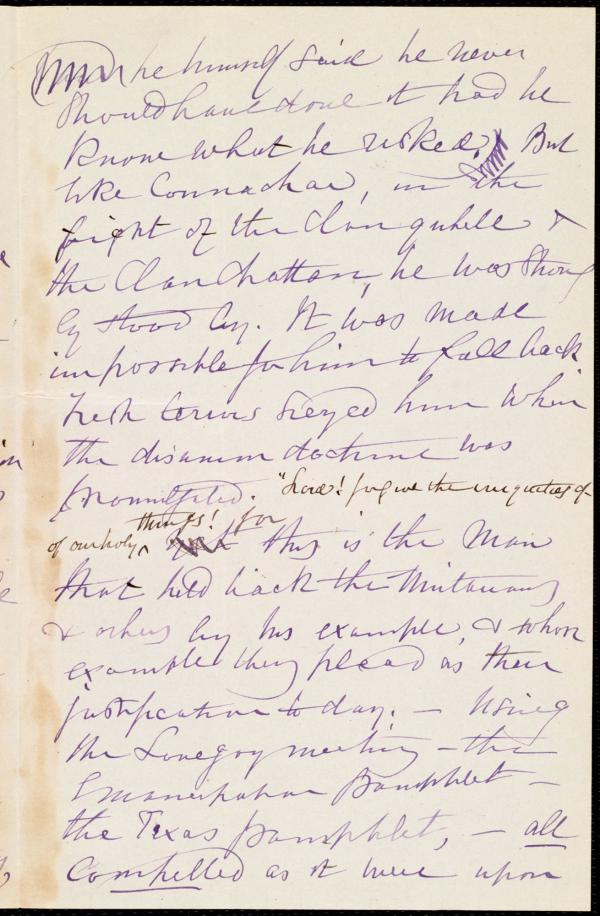 he himself said he never
should have done it had he
known what he risked. But
like Connachar, in the
fight of the clan quhele &
the Clan Chattan, he was strong
ly stood by. It was made
impossible for him to fall back
Fresh terrors siezed him when
the disunion doctrine was
promulgated. "Lord! forgive the iniquities of
of our holy things! for
this is the man
that held back the Unitarians
& others by his example, & whose
example they plead as their
justification to day. — Using
the Lovejoy meeting — the
Emancipation Pamphlet —
the Texas pamphlet, — all
compelled as it were upon